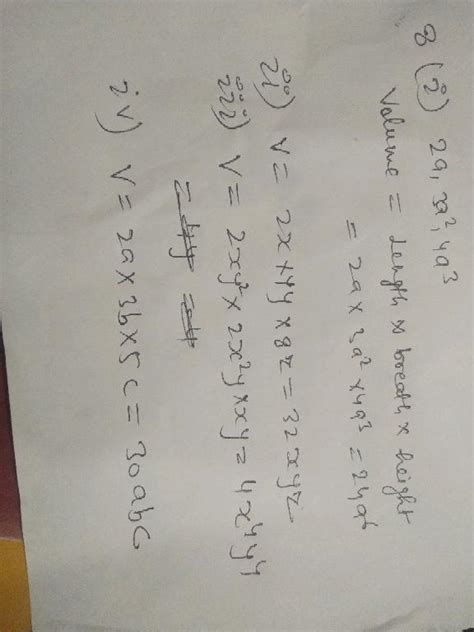 8 (i) 2a, 3a², 4a³
Volume = Length x breath x height
= 2a x 3a² x 4a³ = 24a⁶
ii) V = 2x x 4y x 8z = 32xyz
iii) V = 2xy² x 2x²y x xy = 4x⁴y⁴
iv) V = 2a x 3b x 5c = 30abc